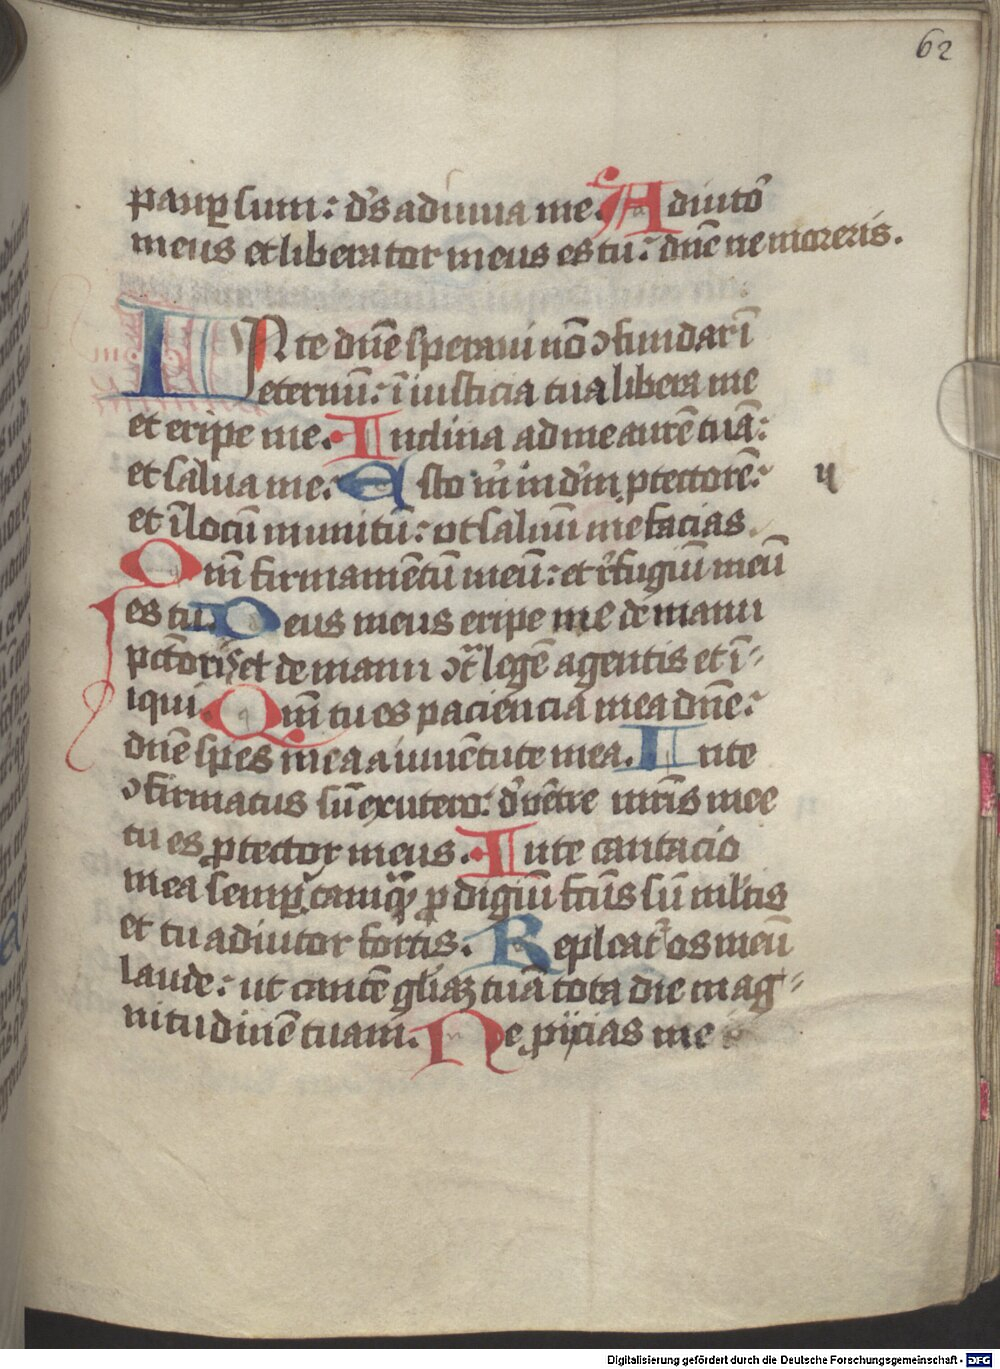 62
paup sum: ds adiuua me. Adiuto
meus et liberator meus es tu: dne ne moreris.
IN te dne speraui no ɔfundar ī
eternū: ī iusticia tua libera me
et eripe me. Inclina ad me aurē tuā:
et salua me. Esto m in dm ptectorē:
et ī locū munitū: vt saluū me facias.
Qm firmamētū meū: et rfugiū meū
es tu. Deus meus eripe me de manu
pctoris et de manu ɔt legē agentis et ī-
iqui. Qm tu es paciencia mea dne:
dne spes mea a iuuētute mea. In te
ɔfirmatus sū ex utero: d vētre mris mee
tu es ptector meus. In te cantacio
mea semp: tamq pdigiū fcus sū mltis
et tu adiutor fortis. Repleat os meū
laude: ut cantē gliaz tuā tota die mag-
nitudinē tuam. Ne pijcias me
Digitalisierung gefördert durch die Deutsche Forschungsgemeinschaft - DFG